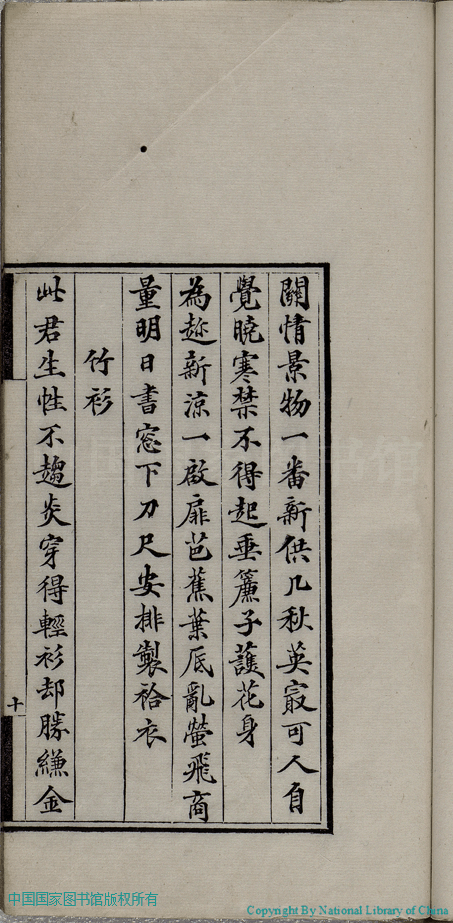 關情景物一番新供几秋英寂可人自
覺曉寒禁不得起垂簾子護花身
為趂新涼一啟扉芭蕉葉底亂螢飛商
量明日書窓下刀尺安排製袷衣
竹衫
此君生性不趨炎穿得輕衫却勝縑金
十
中国国家图书馆版权所有
Copyright By National Library of China